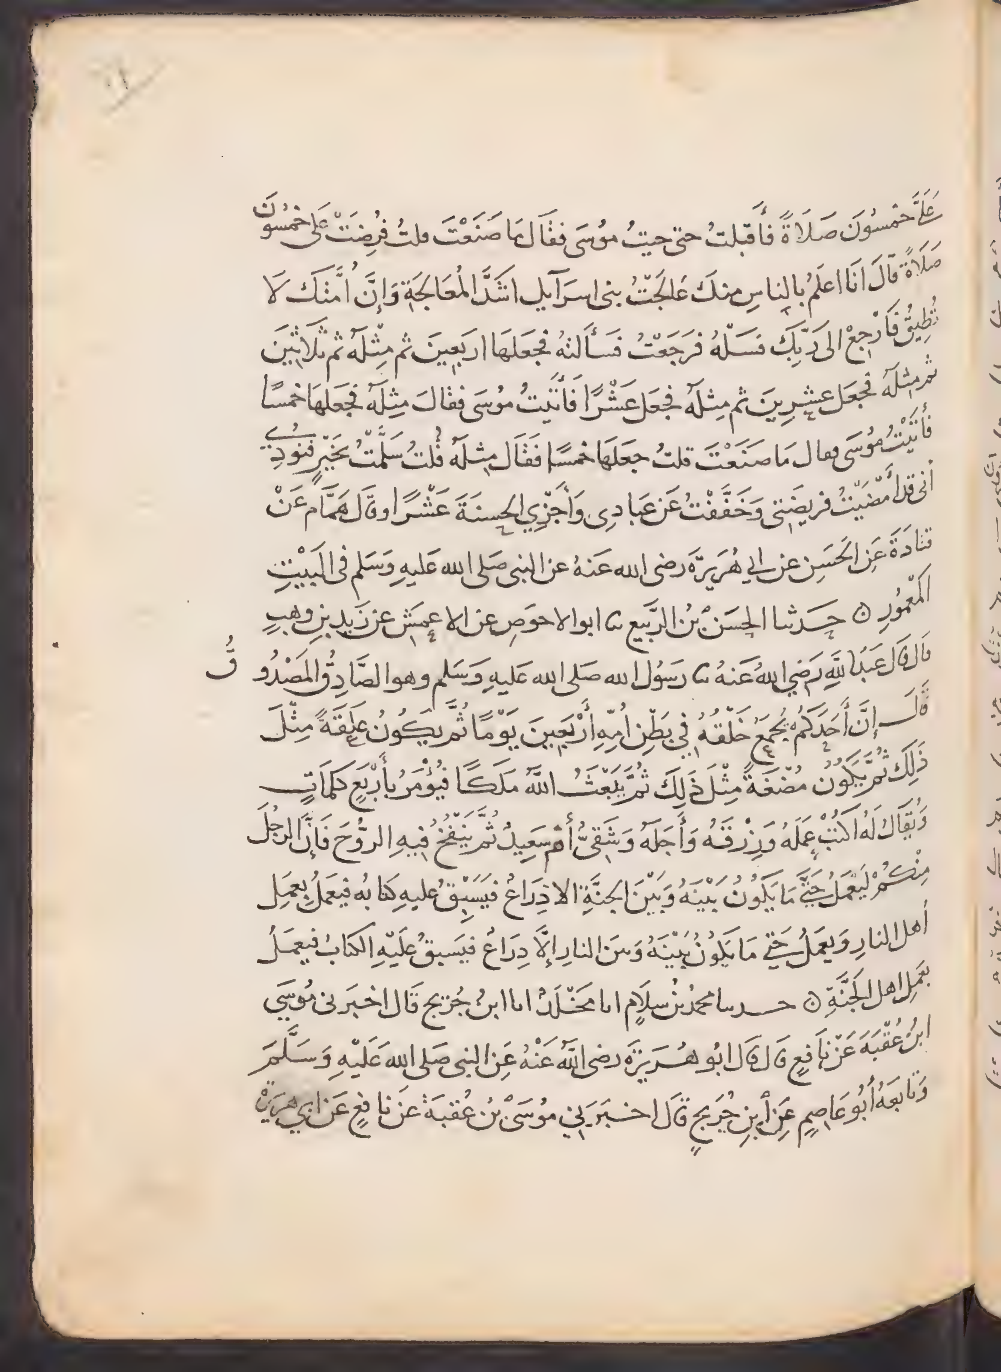 ١٢
عَلَيَّ خمْسُونَ صَلَاةً فَأَقبلتُ حتى جيتُ موُسَى فقَالَ مَا صَنَعْتَ قلتُ فُرِضَتْ عَلى خمْسُونَ
صَلَاةً قَالَ انَا اعلَمُ بالناسِ مِنكَ عَالجَتُ بنى اسرَآيل اشَدَّ المُعَالجَةِ وَإِنَّ اُمَّتَكَ لَا
تُطِيقُ فَارْجِعْ الى رَبِّكَ فسَلْهُ فرَجَعْتُ فسَأَلتهُ فجعَلهَا اربَعِينَ ثم مِثْلَهُ ثم ثلَاثِينَ
ثم مثلَهُ فجعَل عشرِينَ ثم مِثلَهُ فجعَل عَشْرًا فَأَتَيتُ موُسَى فقَالَ مِثلَهُ فجَعَلهَا خمْسًا
فأَتَيْتُ موُسَى فقال مَا صَنَعْتَ قلتُ جعَلهَا خمسًا فقَال مِثلَهُ قُلتُ سَلَّمْتُ بخَيْرٍ فنوُدِيَ
أَنى قد أَمْضَيْتُ فريضَتِى وَخَفَّفْتُ عَن عبَادِى وَأَجْزِي الحسنَةَ عَشْرًا وقَالَ هَمَّام عَنْ
قتَادَةَ عَنِ الحَسَنِ عن ابي هُرَيرَةَ رضى الله عَنهُ عن النبى صَلى الله عَليهِ وَسَلم فى البَيْتِ
المَعْمُورِ ۞ حَدثنا الحسَنُ بْنُ الرَّبيع ثنا ابو الاحوَصِ عن الاعمَش عن زَيدِ بنِ وهبٍ
قَالَ قَالَ عَبْدُ اللَّهِ رَضِيَ اللهُ عَنهُ ثنا رَسُول الله صَلى الله عَليهِ وَسَلم وهوا الصَّادِقُ المَصْدُوقُ
قَالَ إِنَّ أَحَدَكُمْ يُجْمَعُ خَلْقُهُ فِي بَطْنِ اُمِّهِ أَرْبَعِينَ يَوْمًا ثُمَّ يَكُونُ عَلَقَةً مِثْلَ
ذَلِكَ ثُمَّ يَكُونُ مُضْغَةً مِثْلَ ذَلِكَ ثُمَّ يَبْعَثُ اللَّهُ مَلَكًا فيُؤْمَرُ بأَرْبَعِ كلمَاتٍ
وَيُقَالُ لَهُ اكتُبْ عَمَلَهُ وَرِزْقَهُ وَأَجَلَهُ وَشَقِىٌّ أَمْ سَعِيدٌ ثُمَّ يَنْفُخُ فِيهِ الروُّحَ فَإِنَّ الرجُلَ
مِنْكُمْ لَيَعْمَلُ حَتَّى مَا يَكُونُ بَيْنَهُ وَبَيْنَ الجنَّةِ الا ذِرَاعٌ فيَسْبِقُ عليهِ كتَابُهُ فيَعمَلُ بِعَمَلِ
أهل النارِ وَيعمَلُ حَتي مَا يَكُونُ بَيْنَهُ وَبين النارِ إِلَّا ذِرَاعٌ فيَسبقُ عَلَيْهِ الكتَابُ فيَعمَلُ
بِعَمَلِ اهل الجَنَّةِ ۞ حدثنا محمدُ بْنُ سلَامٍ انا مَخْلَدٌ انا ابنُ جُرَيجٍ قَال اخبَرَنى موُسَي
ابنُ عُقْبَةَ عَنْ نَافِعٍ قَالَ قَالَ ابُو هُرَيرَةَ رضى اللَّهُ عَنْهُ عَنِ النبى صَلى الله عَلَيْهِ وَسَلَّمَ
وَتَابَعَهُ أَبُو عَاصِمٍ عَنِ ابنِ جُرَيجٍ قَال اخبَرَنِي موُسَى بْنُ عُقبَةَ عَنْ نَافِعٍ عَن ابي هريرَةَ